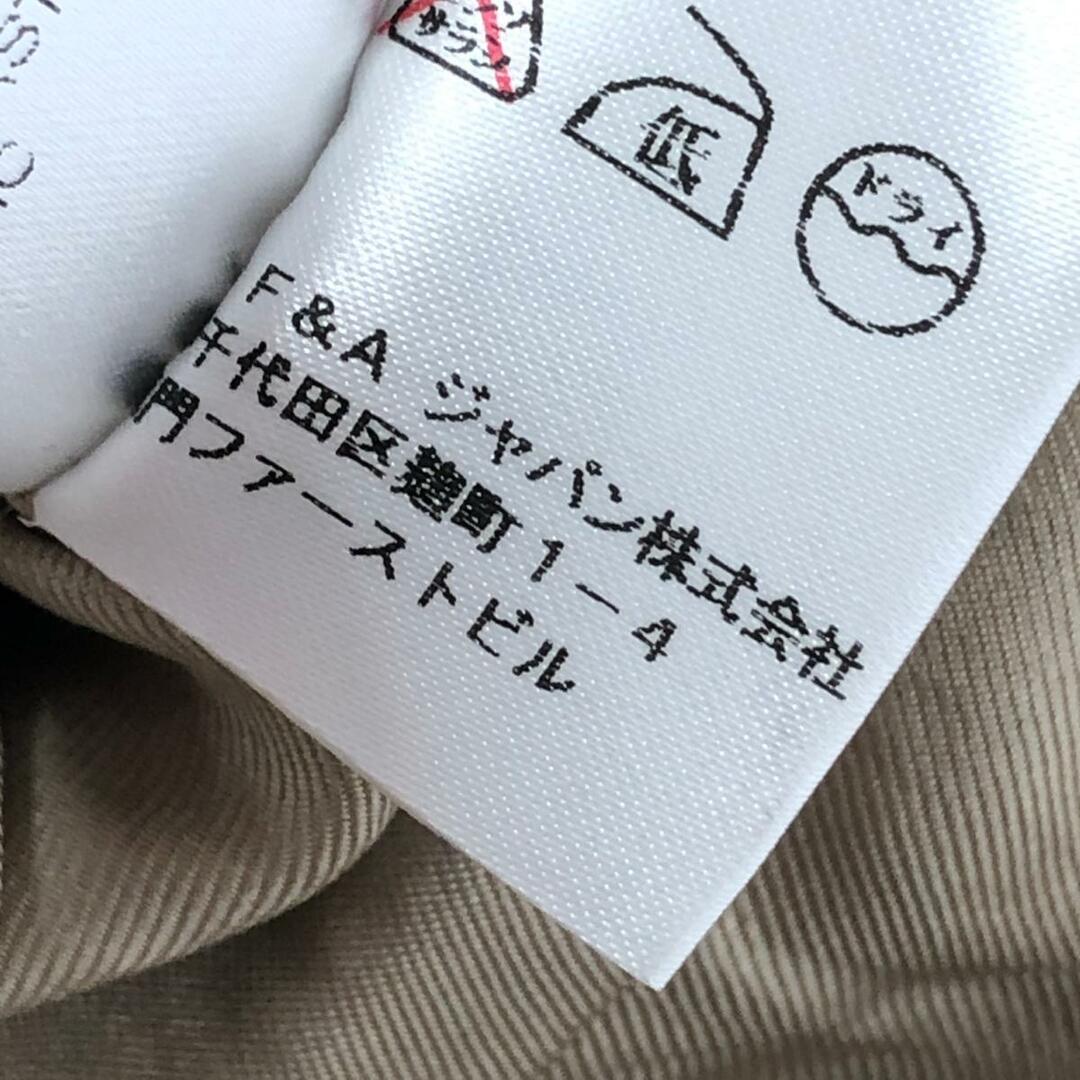 サラシ
低
ドライ
F&A ジャパン株式会社
千代田区麹町1-4
門ファーストビル